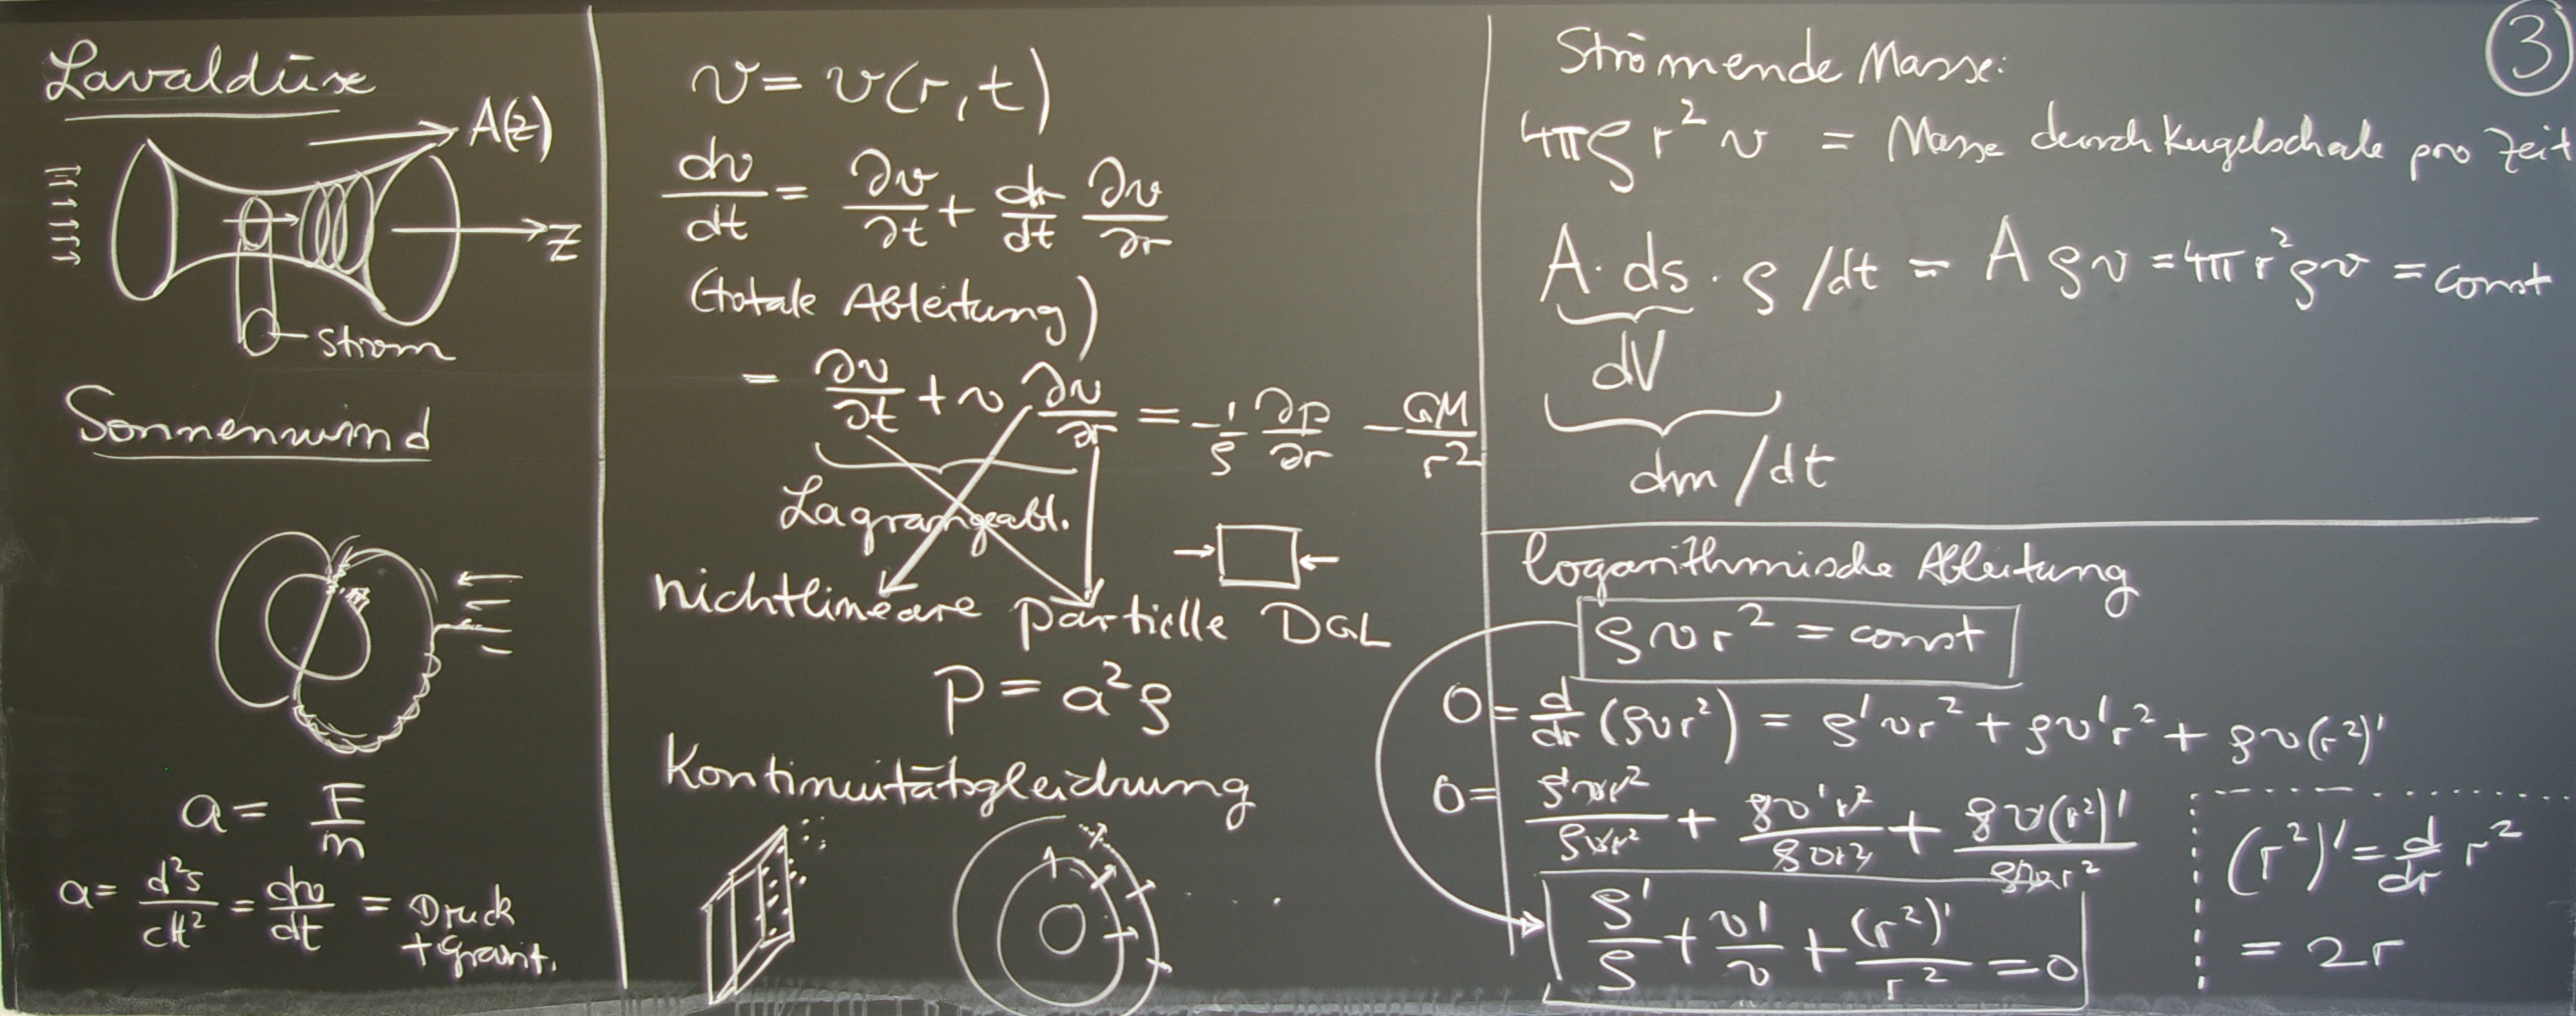 Lavaldüse
A(z)
z
Strom
Sonnenwind
a = F/m
a = d²s/dt² = dv/dt = Druck
+ Gravit.
v = v(r,t)
dv/dt = ∂v/∂t + dr/dt ∂v/∂r
(totale Ableitung)
= ∂v/∂t + v ∂v/∂r = -1/ρ ∂p/∂r - GM/r²
Lagrangeabl.
nichtlineare partielle DGL
P = a²ρ
Kontinuitätsgleichung
3
Strömende Masse:
4πρ r² v = Masse durch Kugelschale pro Zeit
A · ds · ρ /dt = A ρ v = 4π r² ρ v = const
dV
dm/dt
logarithmische Ableitung
ρ v r² = const
0 = d/dr (ρvr²) = ρ'vr² + ρv'r² + ρv(r²)'
0 = ρ'vr²/ρvr² + ρv'r²/ρvr² + ρv(r²)'/ρvr²
ρ'/ρ + v'/v + (r²)'/r² = 0
(r²)' = d/dr r²
= 2r